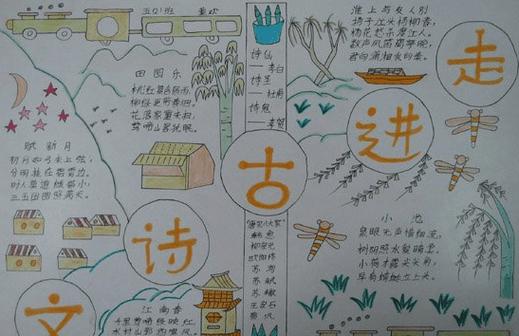 五(2)班
走
进
古
诗
文
淮上与友人别
扬子江头杨柳春,
杨花愁杀渡江人.
数声风笛离亭晚,
诗仙
——李白
诗圣
——杜甫
诗鬼
——李贺
田园乐
桃红复含宿雨,
柳绿更带春烟.
花落家童未扫,
莺啼山客犹眠.
赋新月
初月如弓未上弦,
分明挂在碧霄边.
时人莫道蛾眉小,
三五团圆照满天.
"唐宋八大家"
韩愈
柳宗元
欧阳修
苏洵
苏轼
苏辙
王安石
曾巩
小池
泉眼无声惜细流,
树阴照水爱晴柔.
小荷才露尖尖角,
早有蜻蜓立上头.
江南春
千里莺啼绿映红,
水村山郭酒旗风.